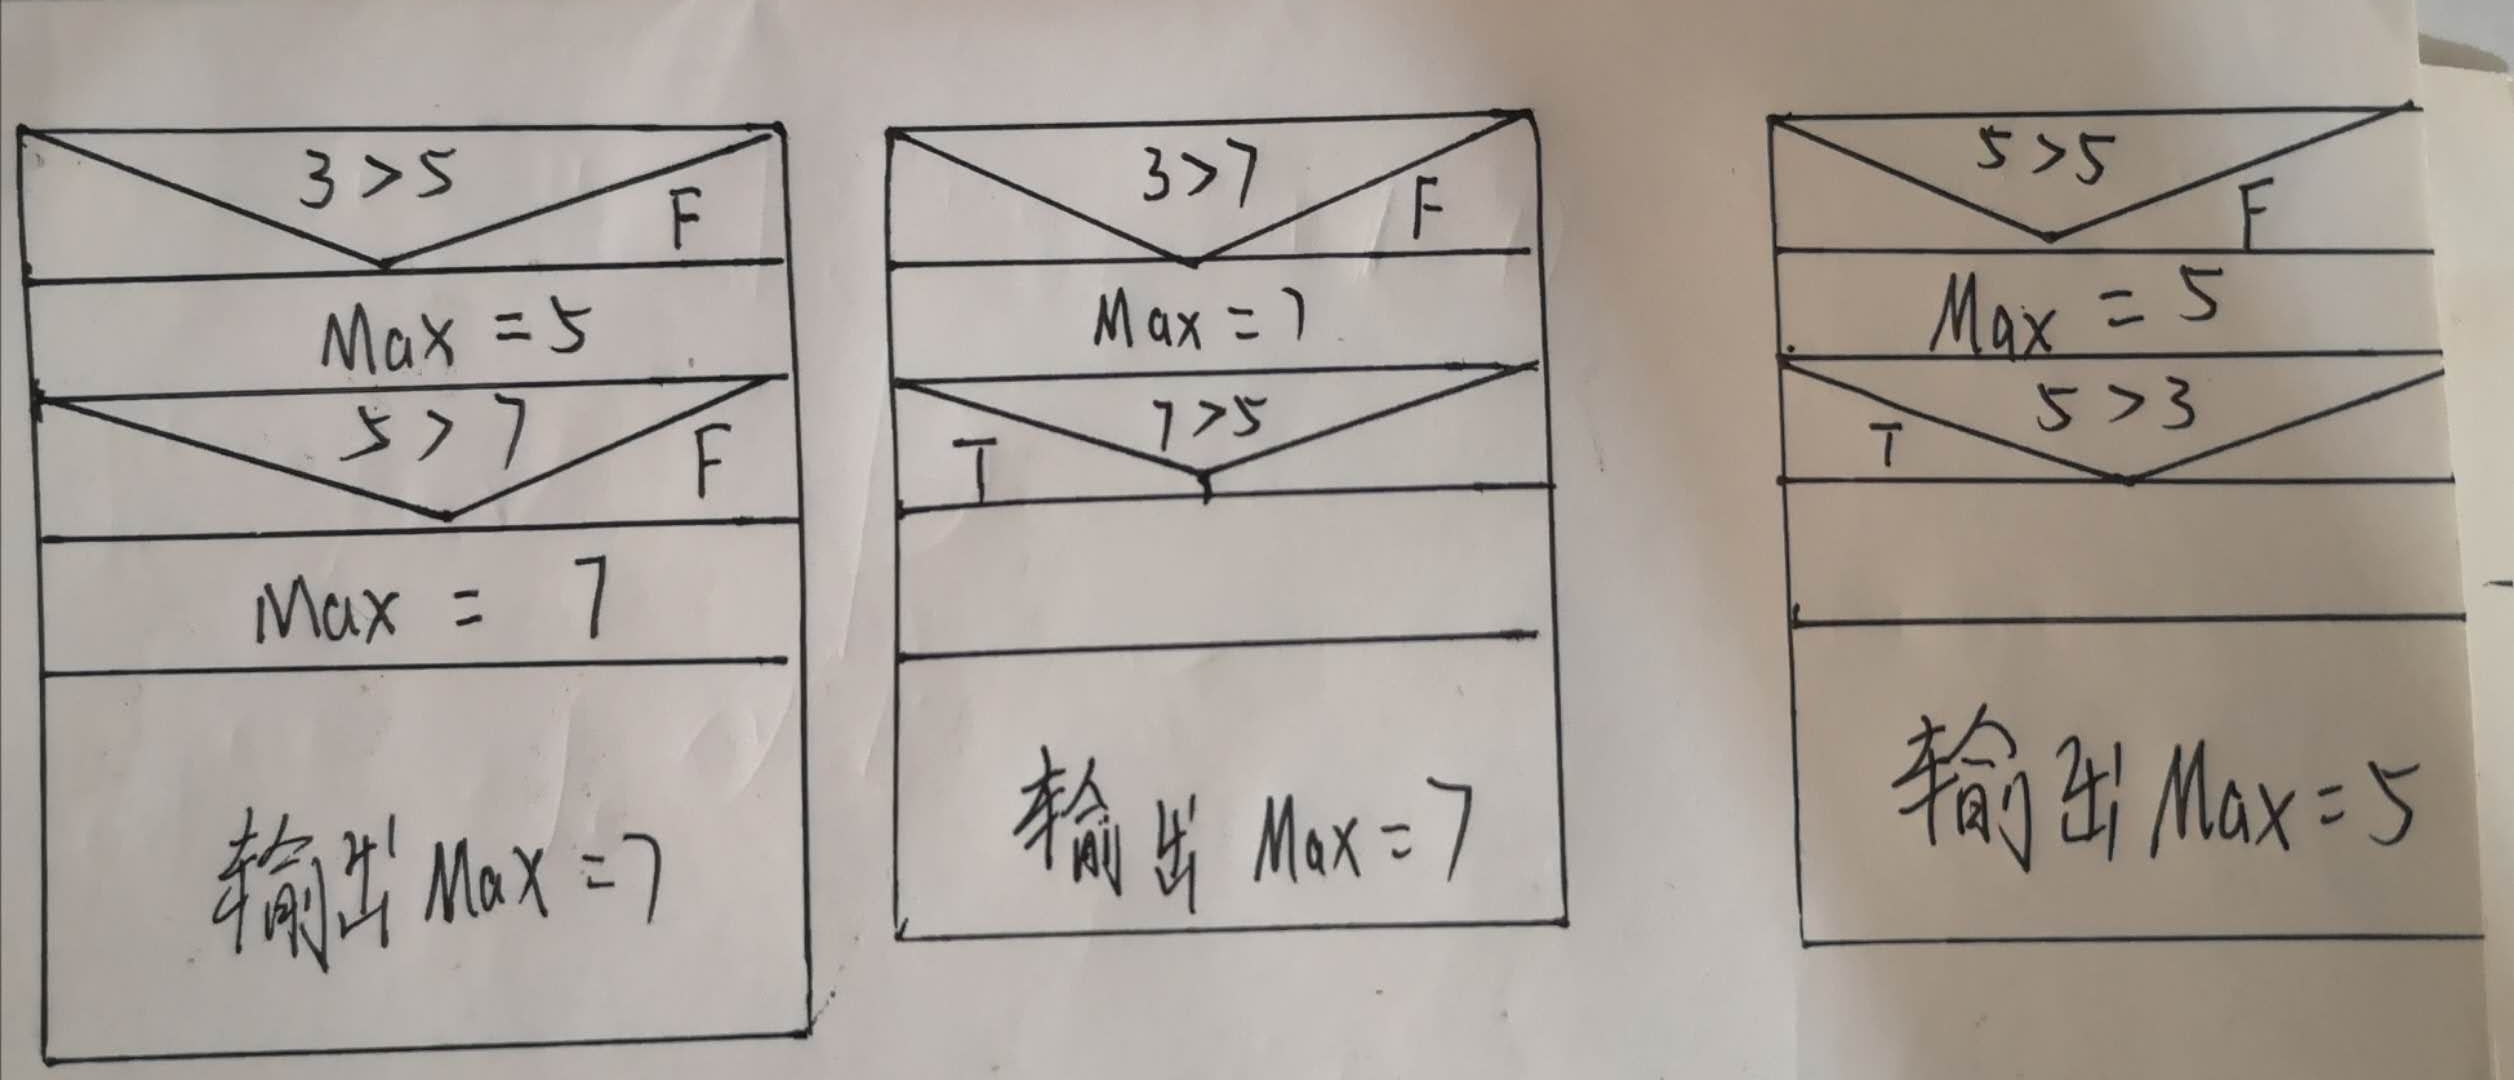 3>5
F
Max = 5
5>7
F
Max = 7
输出 Max = 7
3>7
F
Max = 7
7>5
T
输出 Max = 7
5>5
F
Max = 5
5>3
T
输出 Max = 5